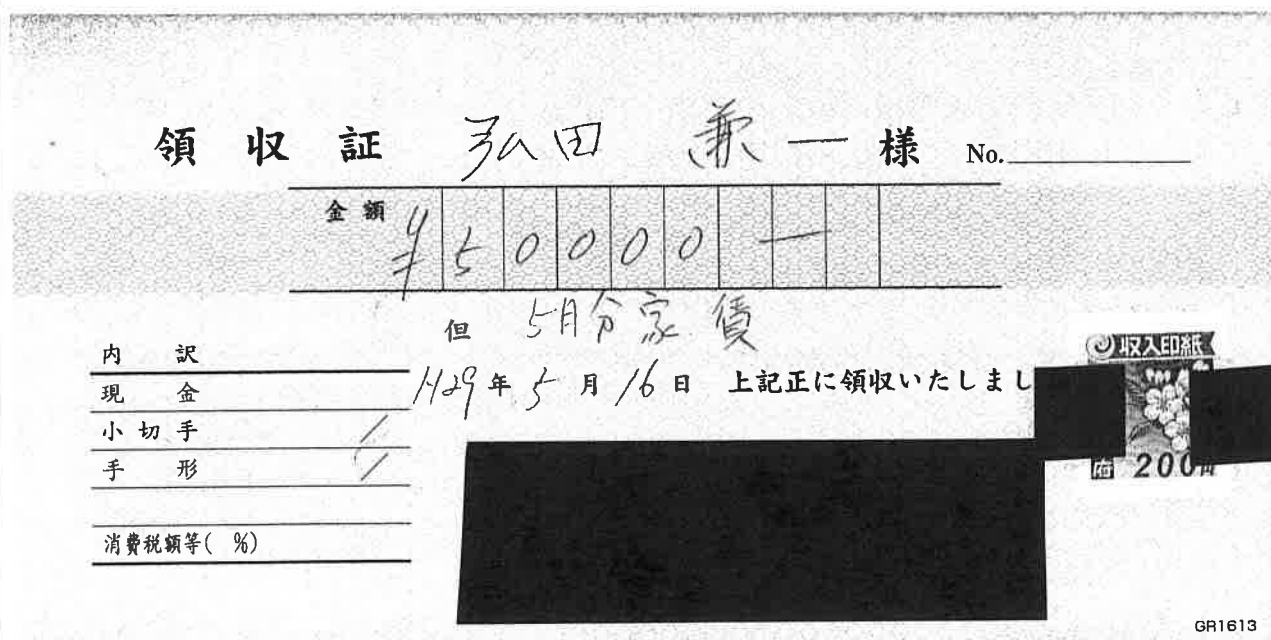 領収証 弘田 兼一 様 No.
金額 ¥50000 —
但 5月分家賃
H29年5月16日 上記正に領収いたしまし
内訳
現金
小切手
手形
消費税額等( %)
収入印紙
200円
GR1613